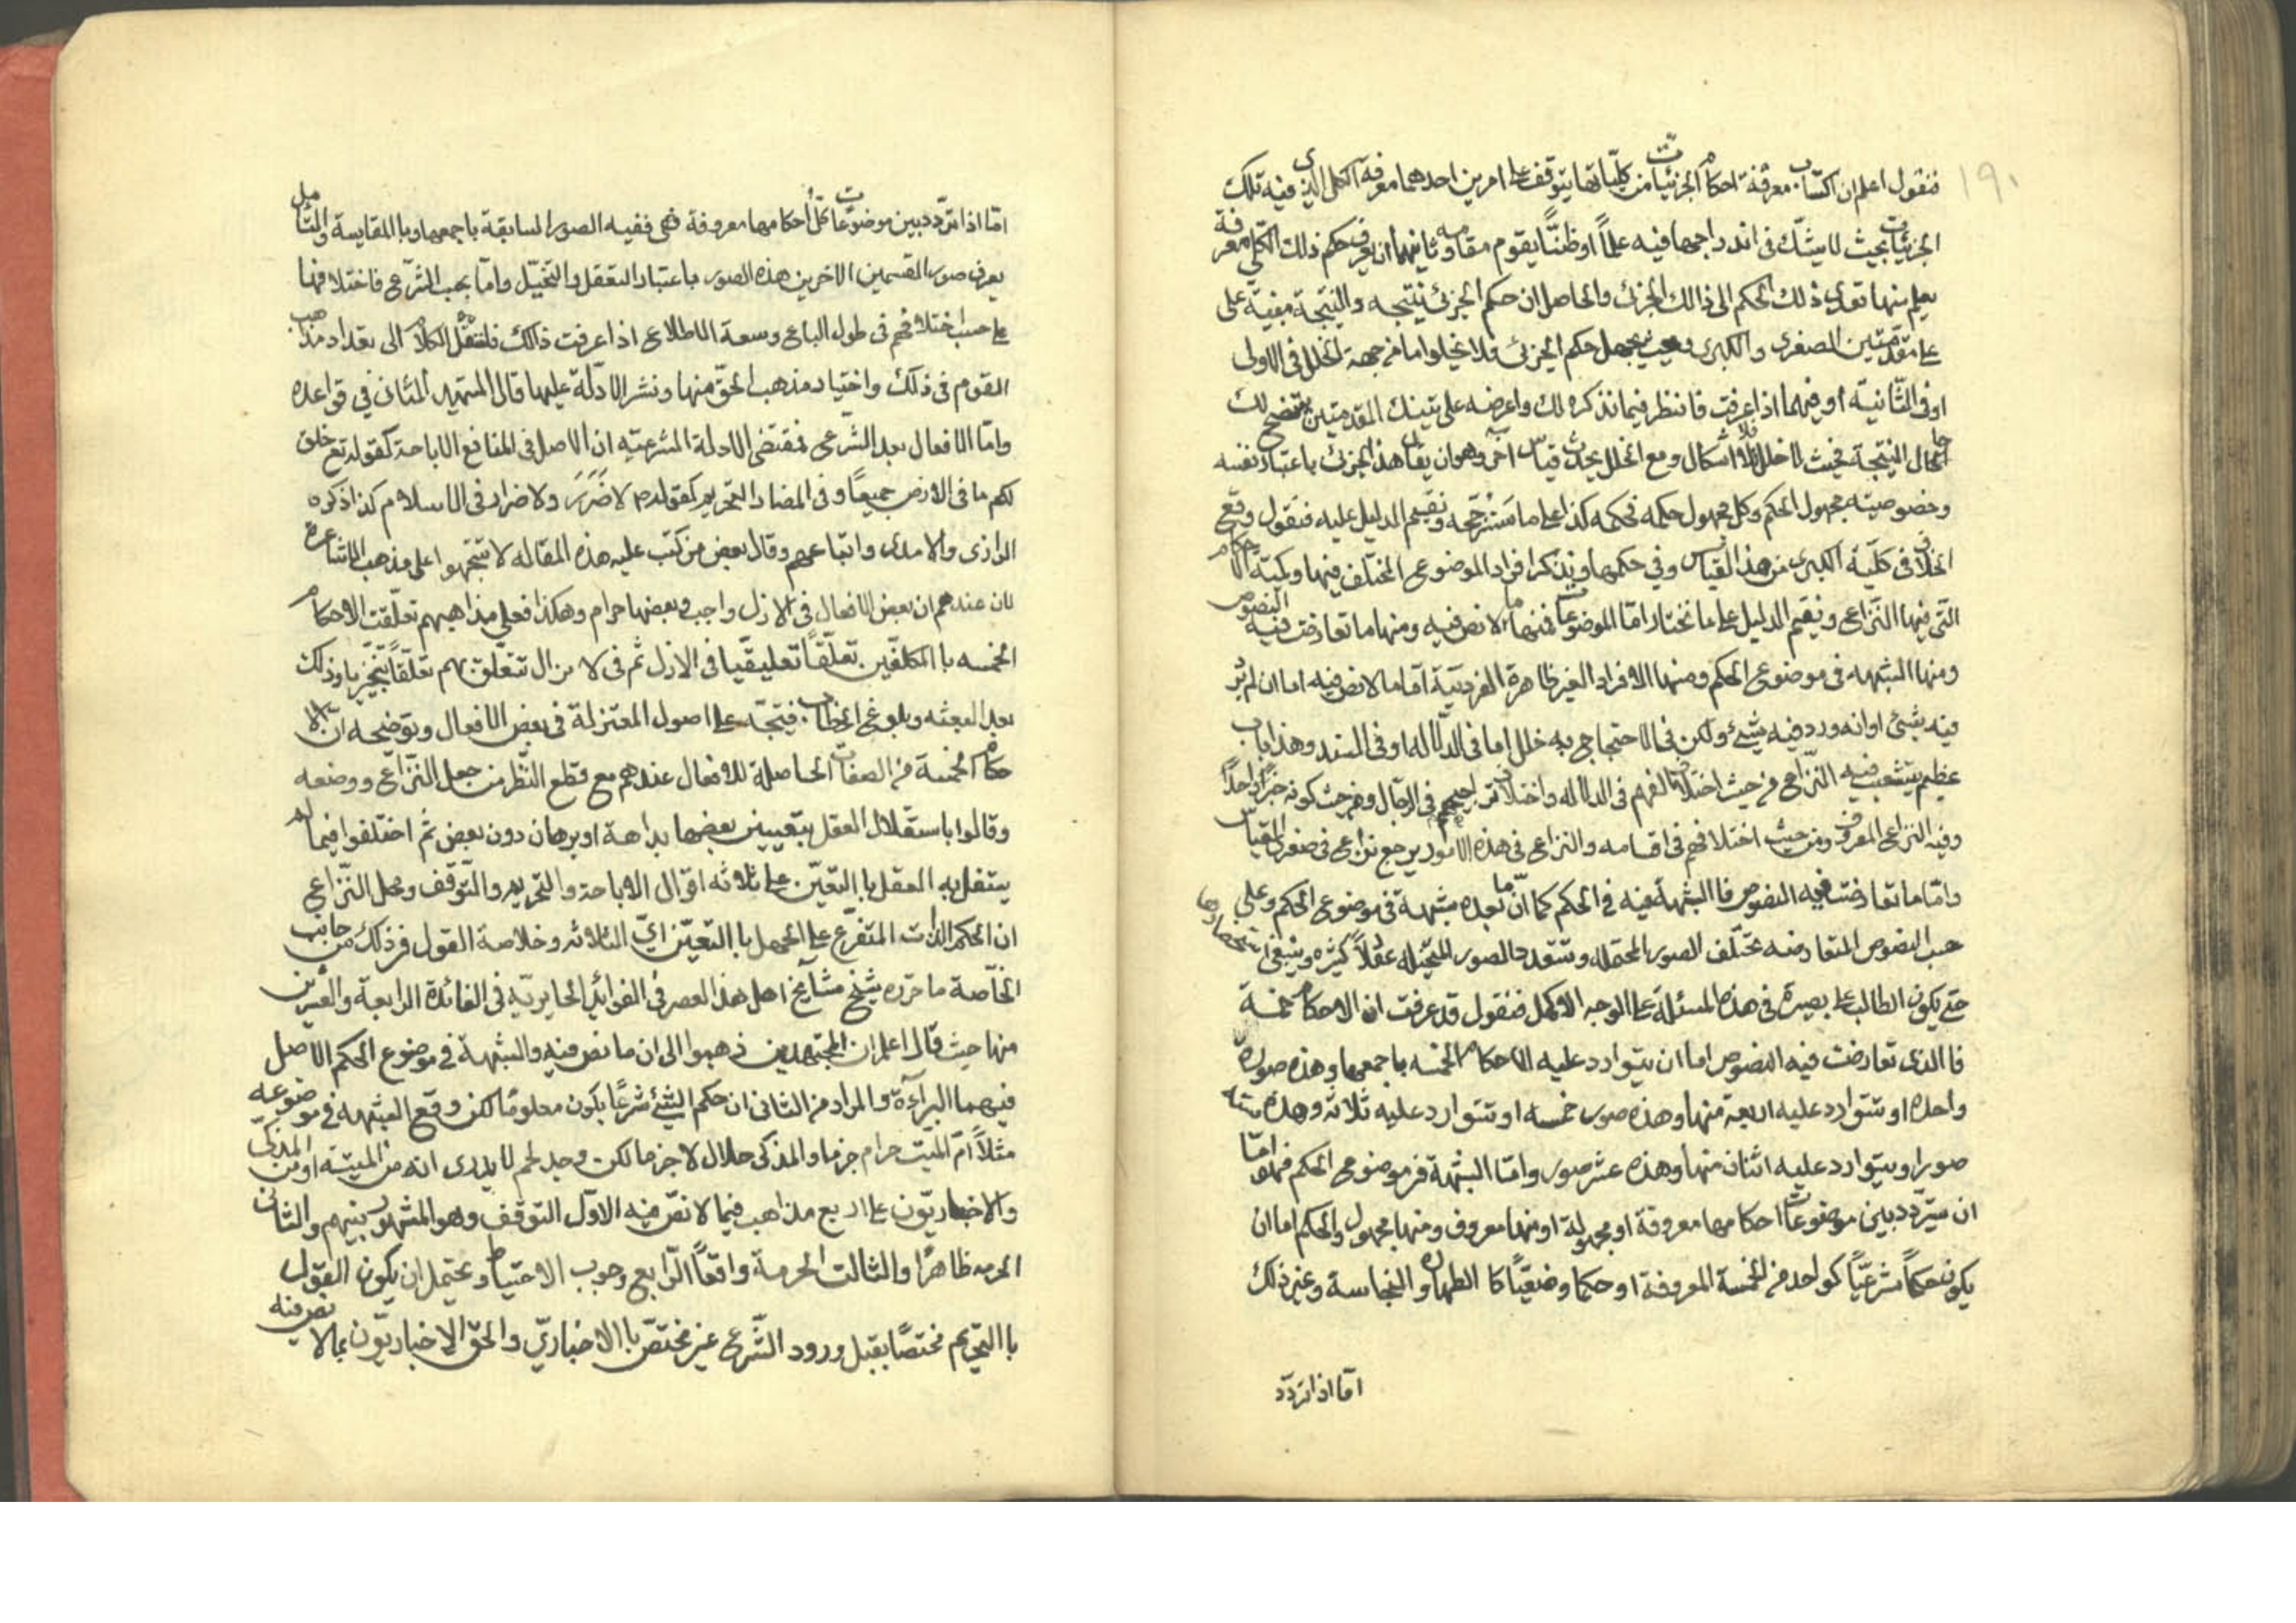 ١٩٠
فنقول اعلم ان اكتساب معرفة احكام الجزئيات من كلياتها يتوقف على امرين احدهما معرفة الكلى الذى فيه تلك
الجزئيات بحيث لا يشك فى اندراجها فيه علماً او ظنّاً يقوم مقامه وثانيهما ان يعرف حكم ذلك الكلّى معرفة
يعلم منها تعدى ذلك الحكم الى ذالك الجزئ والحاصل ان حكم الجزئ نتيجه والنتيجة مبنية على
على مقدّمتين الصغرى والكبرى وحيث يجهل حكم الجزئ فلا يخلوا ما من جهة الخلل فى الاولى
او فى الثّانيّة او فيهما اذا عرفت فانظر فيما نذكره لك واعرضه على تينك المقدمتين يتضح لك
حال النتيجة فحيث لا خلل فلا اشكال ومع الخلل يحدث قياس آخر وهو ان يقال هذا الجزئ باعتبار نفسه
وخصوصيته مجهول الحكم وكل مجهول حكمه فحكمه كذا على ما سنرجّحه ونقيم الدليل عليه فنقول وقع
الخلاف فى كلّية الكبرى من هذا القياس وفي حكمها ونذكر افراد الموضوع المختلف فيها وكمية الاحكام
التّى فيها النّزاع ونقيم الدليل على ما نختار امّا الموضوعات فمنها ما لا نص فيه ومنها ما تعارضت فيه النصوص
ومنها الشبهه فى موضوع الحكم ومنها الافراد الغير ظاهرة الفرديّة امّا ما لا نص فيه اما ان لم يرد
فيه شئ او انه ورد فيه شئ ولكن فى الاحتجاج به خلل اما فى الدلاله او فى السند وهذا باب
عظيم يتشعب فيه النّزاع من حيث اختلاف الفهم فى الدلاله واختلاف تراجيحهم فى الرجال ومن حيث كونه خبراً واحداً
وفيه النزاع المعروف ومن حيث اختلافهم فى اقسامه والنزاع فى هذه الامور يرجع نزاع فى صغرى القياس
وامّا ما تعارضت فيه النصوص فالشبهة فيه في الحكم كما انّ ما بعده شبهة فى موضوع الحكم وعلى
حسب النصوص المتعارضه تختلف الصور المحتمله وتتعدد الصور المتخيله عقلاً كثيره وينبغى استحضارها
حتى يكون الطالب على بصيرة فى هذه المسئلة على الوجه الاكمل فنقول قد عرفت ان الاحكام خمسة
فالذى تعارضت فيه النصوص اما ان يتوارد عليه الاحكام الخمسه باجمعها وهذه صورة
واحده او تتوارد عليه اربعة منها وهذه صور خمسه او تتوارد عليه ثلاثه وهذه ستة
صور او يتوارد عليه اثنان منها وهذه عشر صور وامّا الشبهة فى موضوع الحكم فهو امّا
ان يتردّد بين موضوعات احكامها معروفة او مجهولة او منها معروف ومنها مجهول والحكم اما ان
يكون حكماً شرعيّاً كواحد من الخمسة المعروفة او حكما وضعيّاً كا الطهاره والنجاسة وغير ذلك
امّا اذا تردّد
امّا اذا تردّد بين موضوعات كل أحكامها معروفة فهى ففيه الصور السابقة باجمعها وبا المقايسة والتأمل
يعرف صور القسمين الاخرين هذه الصور باعتبار التعقل والتخيّل وامّا بحسب الشّرع فاختلافها
على حسب اختلافهم فى طول الباع وسعة الاطلاع اذا عرفت ذالك فلننقل الكلام الى تعداد مذاهب
القوم فى ذلك واختيار مذهب الحقّ منها ونشر الادّلة عليها قال المتهيد الثانى في قواعده
وامّا الافعال بعد الشّرع فمقتضى الادلة الشرعيّه ان الاصل فى المنافع الاباحة كقوله تع خلق
لكم ما فى الارض جميعاً وفى المضار التحريم كقوله ص لا ضَرَرَ ولا ضرار فى الاسلام كذا ذكره
الرازى والامدى واتباعهم وقال بعض من كتب عليه هذه المقاله لا تتجّهوا على مذهب الاشاعرة
لان عندهم ان بعض الافعال فى الازل واجب وبعضها حرام وهكذا فعلى مذاهبهم تعلّقت الاحكام
الخمسه با المكلفّين تعلّقاً تعليقيّا فى الازل ثم فى لا يزال تتعلّق بهم تعلّقاً تنجيزيا وذلك
بعد البعثه وبلوغ الخطاب فيتجّه على اصول المعتزلة فى بعض الافعال وتوضيحه انّ الا
حكام الخمسة من الصفات الحاصلة للافعال عندهم مع قطع النّظر من جعل النّزاع ووضعه
وقالوا باستقلال العقل بتعيين بعضها بداهة او برهان دون بعض ثم اختلفوا فيما لم
يستقل به العقل با التعيّن على ثلاثه اقوال الاباحة والتحريم والتّوقف ومحل النّزاع
ان الحكم الذات المتفرّع على الجهل با التعيّن اىّ الثلاثه وخلاصة القول فى ذلك من جانب
الخاصّة ما حرّره شيخ مشايخ اهل هذا العصر فى الفوائد الحايريّه فى الفائدة الرابعة والعشرين
منها حيث قال اعلم ان المجتهدين ذهبوا الى ان ما نص فيه والشبهة في موضوع الحكم الاصل
فيهما البراءة والمراد من الثانى ان حكم الشئ شرعًا يكون معلومًا لكن وقع الشبهه فى موضوعه
مثلاً انّ الميّت حرام جزما والمذكى حلال لا جزما لكن وجد لحم لا يدرى انه من الميتة او من المذكى
والاخباريّون على اربع مذاهب فيما لا نصّ فيه الاوّل التوقف وهو المشهور بينهم والثانى
الحرمه ظاهرًا والثالث الحرمة واقعاً الرّابع وجوب الاحتياط ويحتمل ان يكون القول
با التحريم مختصًا بقبل ورود الشّرع غير مختصّ با الاخباريّ والحق الاخباريّون بما لا نص فيه